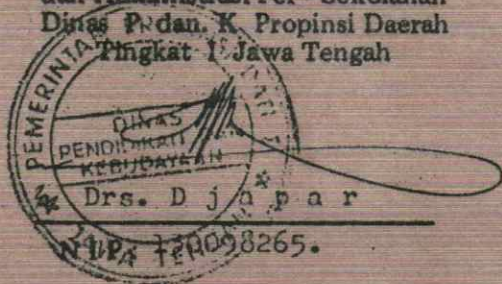 Dinas P. dan. K. Propinsi Daerah
Tingkat I Jawa Tengah
PEMERINTA
DINAS
PENDIDIKAN
KEBUDAYAAN
Drs. D j a p a r
NIP. 130098265.
JAWA TENGAH